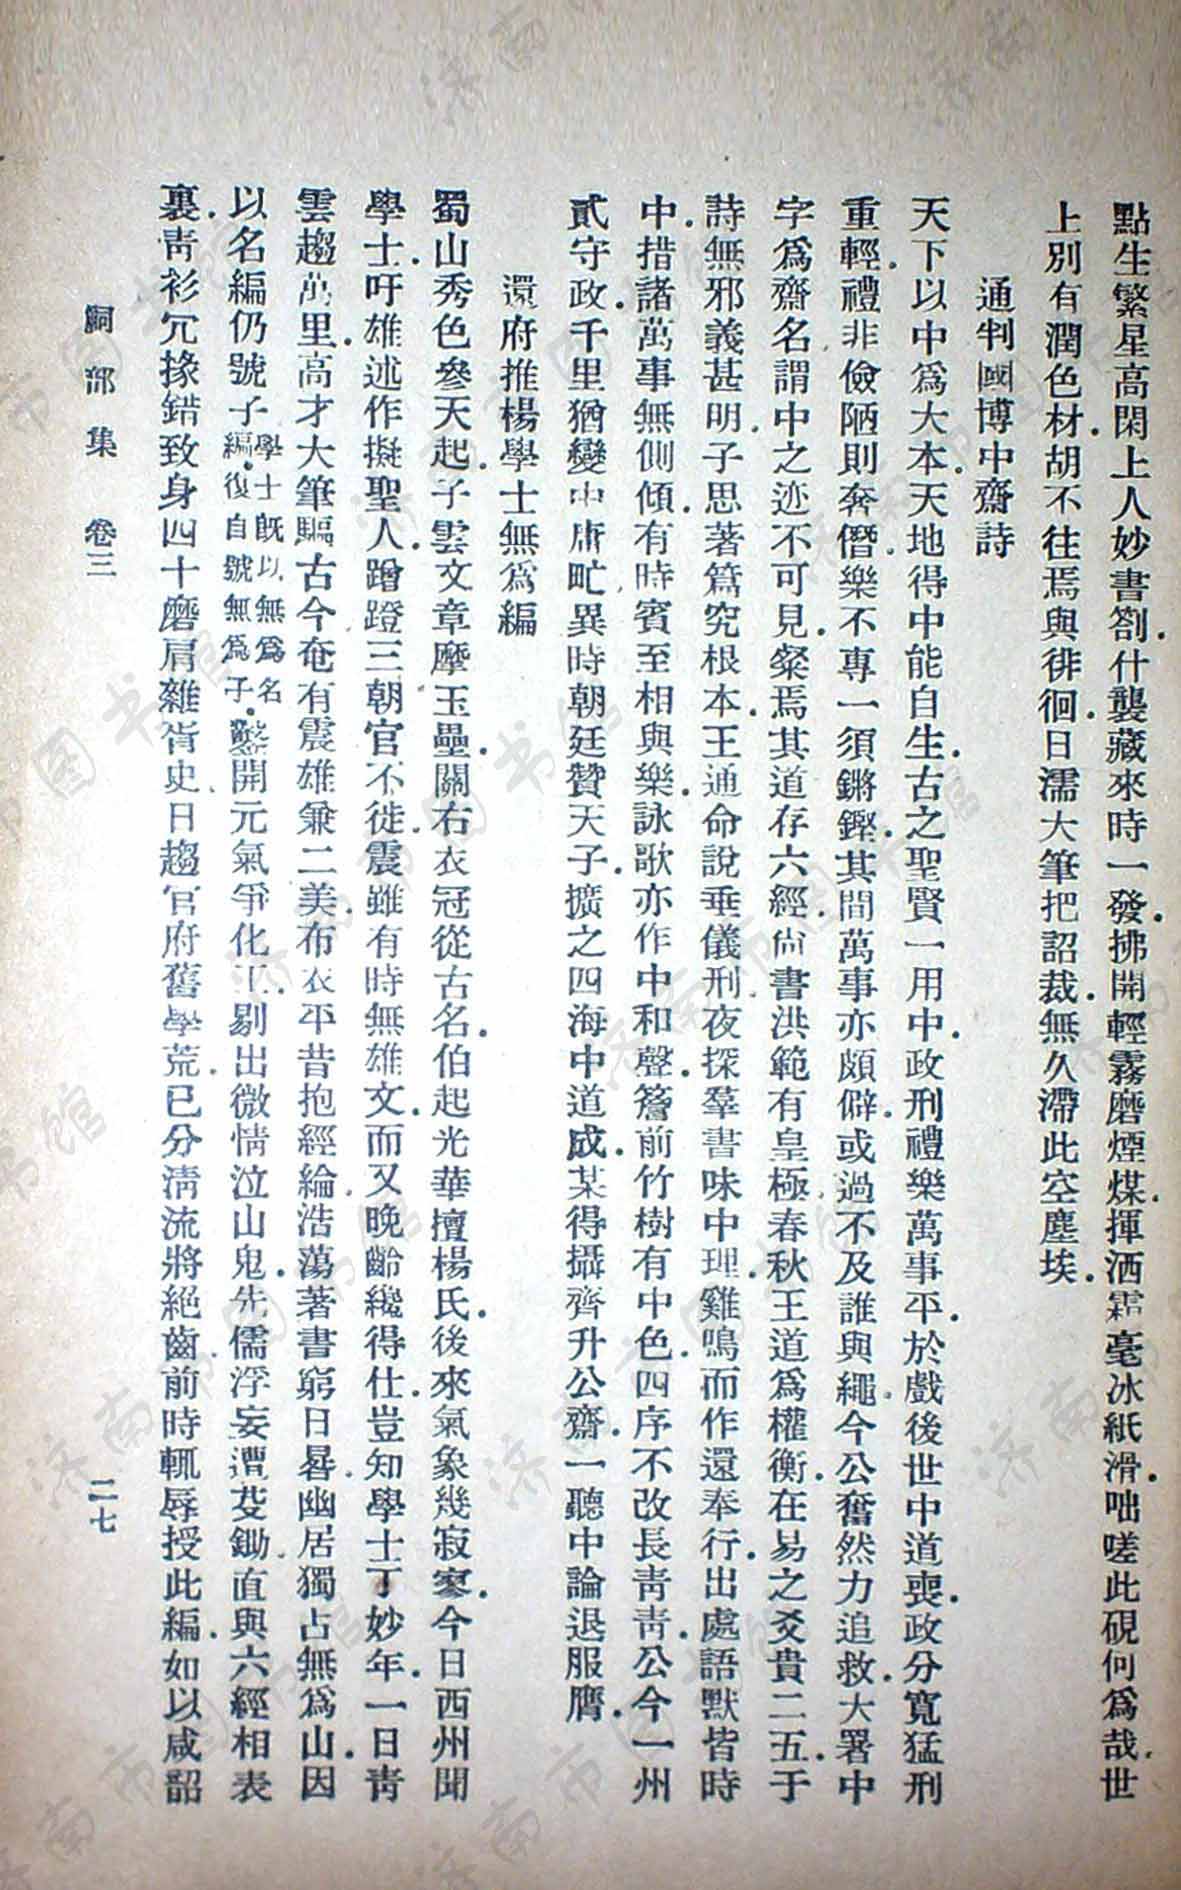 點生繁星高閑上人妙書劄什襲藏來時一發拂開輕霧磨煙煤揮洒霜毫冰紙滑咄嗟此硯何爲哉世
上別有潤色材胡不往焉與徘徊日濡大筆把詔裁無久滯此空塵埃
通判國博中齋詩
天下以中爲大本天地得中能自生古之聖賢一用中政刑禮樂萬事平於戲後世中道喪政分寬猛刑
重輕禮非儉陋則奔僭樂不專一須鏘鏗其間萬事亦頗僻或過不及誰與繩今公奮然力追救大署中
字爲齋名謂中之迹不可見粲焉其道存六經尙書洪範有皇極春秋王道爲權衡在易之爻貴二五于
詩無邪義甚明子思著篇究根本王通命說垂儀刑夜探羣書味中理雞鳴而作還奉行出處語默皆時
中措諸萬事無側傾有時賓至相與樂詠歌亦作中和聲簷前竹樹有中色四序不改長靑靑公今一州
貳守政千里猶變中庸甿異時朝廷贊天子擴之四海中道成某得攝齊升公齋一聽中論退服膺
還府推楊學士無爲編
蜀山秀色參天起子雲文章摩玉壘關右衣冠從古名伯起光華擅楊氏後來氣象幾寂寥今日西州聞
學士吁雄述作擬聖人蹭蹬三朝官不徙震雖有時無雄文而又晚齡纔得仕豈知學士丁妙年一日靑
雲趨萬里高才大筆驅古今奄有震雄兼二美布衣平昔抱經綸浩蕩著書窮日晷幽居獨占無爲山因
以名編仍號子學士旣以無爲名編復自號無爲子鑿開元氣爭化工剔出微情泣山鬼先儒浮妄遭芟鋤直與六經相表
裏靑衫冗掾錯致身四十磨肩雜胥史日趨官府舊學荒已分淸流將絕齒前時輒辱授此編如以咸韶
祠部集 卷三
二七
济南市图书馆